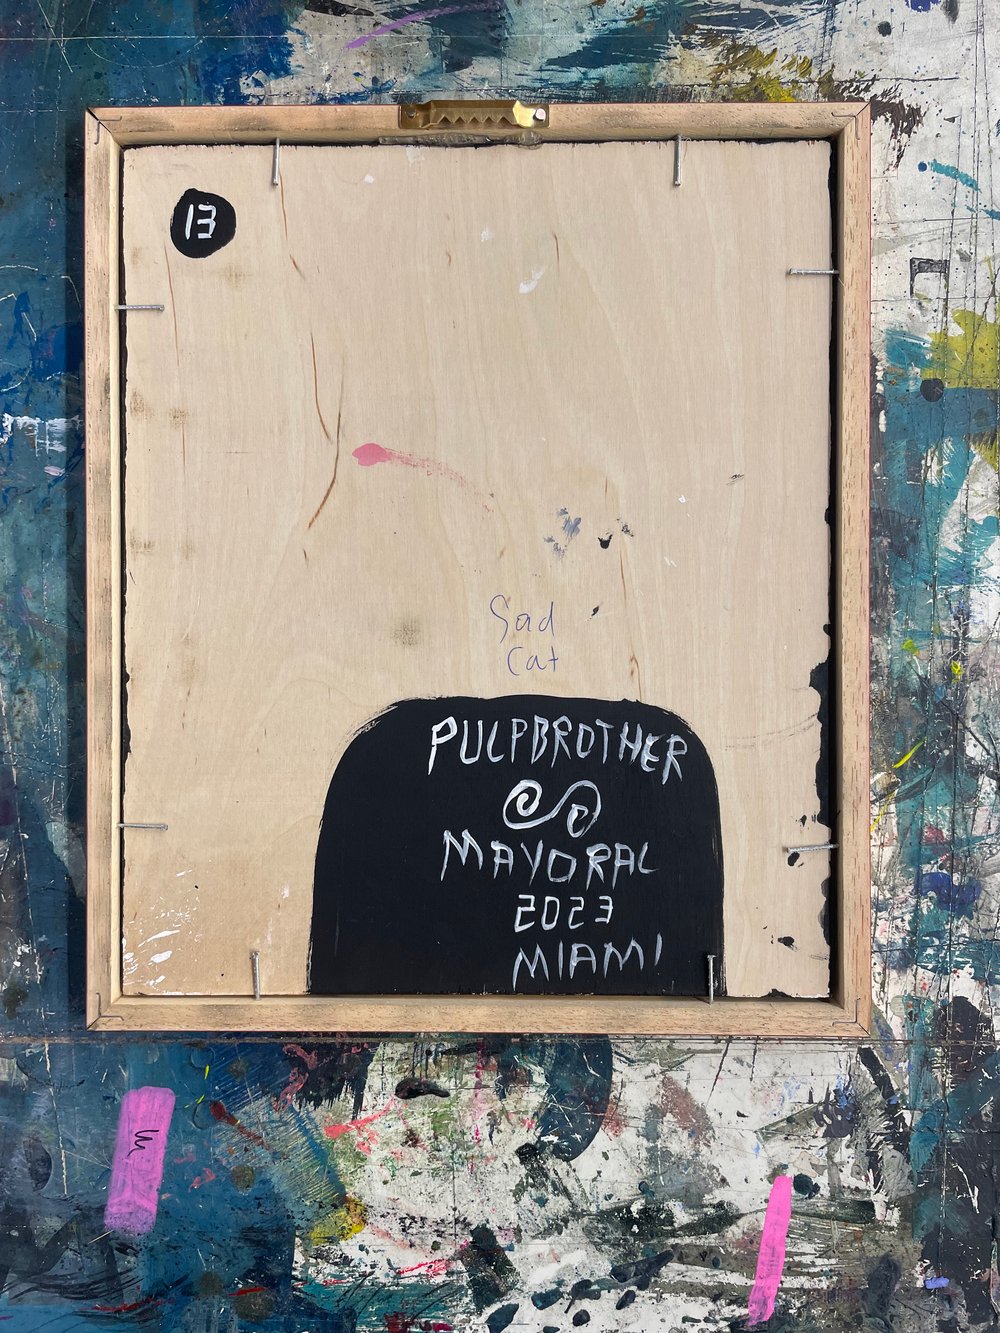 13
Sad
Cat
PULPBROTHER
MAYORAL
2023
MIAMI